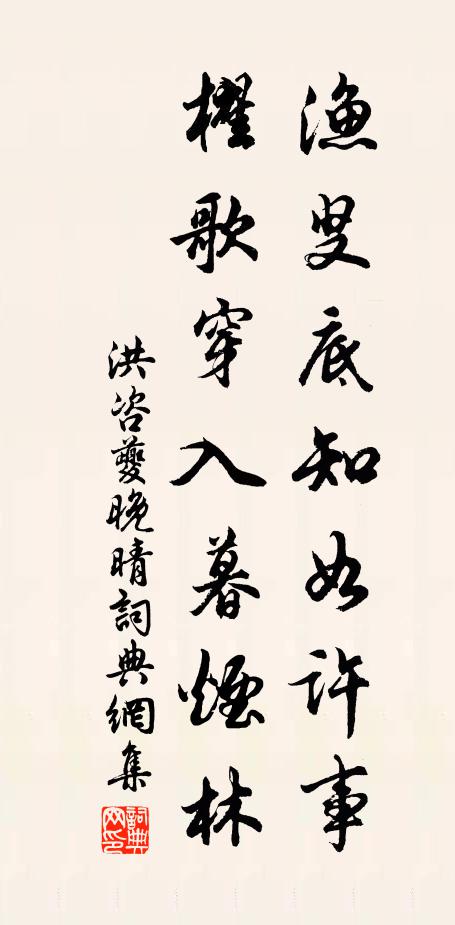 漁叟底知如許事
櫂歌穿入暮煙林
洪咨夔晚晴詞典網集
詞典網印